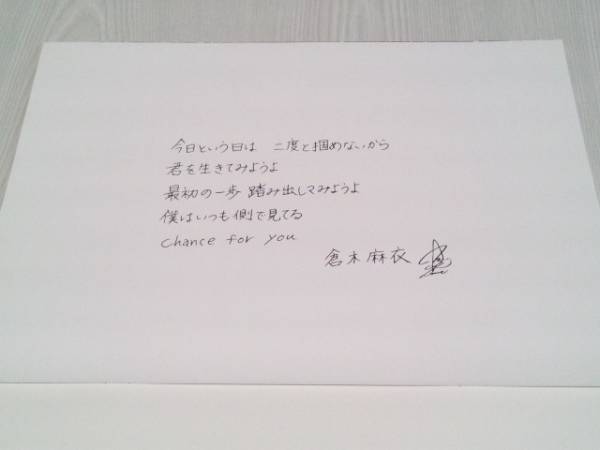 今日という日は 二度と掴めないから
君を生きてみようよ
最初の一歩 踏み出してみようよ
僕はいつも側で見てる
chance for you
倉木麻衣